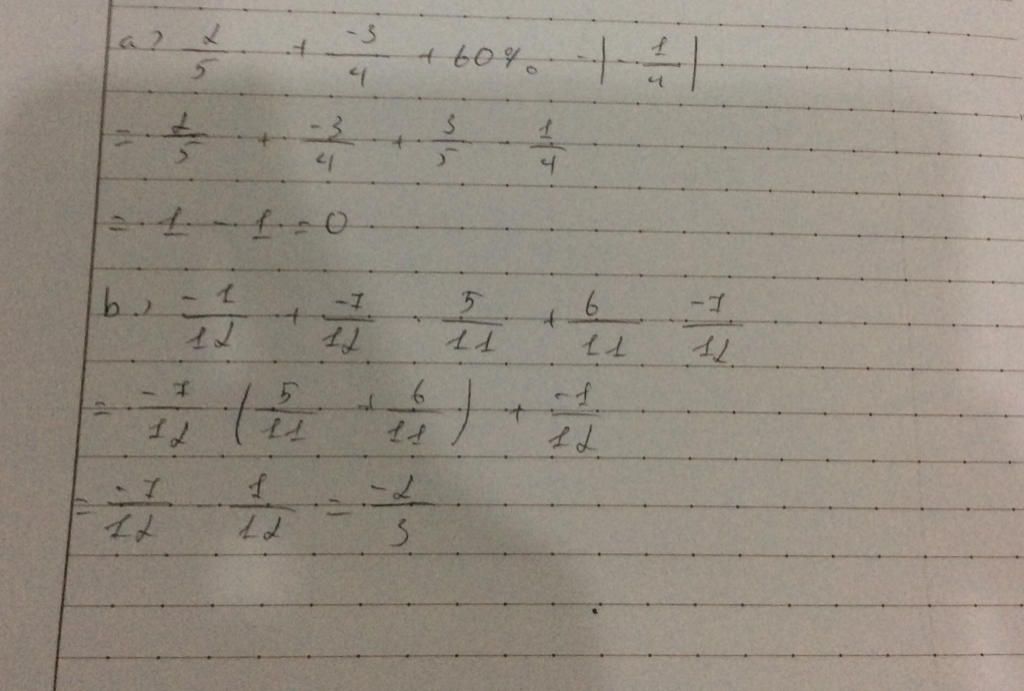 a) 2/5 + -3/4 + 60% - |-1/4|
= 2/5 + -3/4 + 3/5 - 1/4
= 1 - 1 = 0
b) -1/12 + -7/12 . 5/11 + 6/11 . -7/12
= -7/12 (5/11 + 6/11) + -1/12
= -7/12 - 1/12 = -2/3